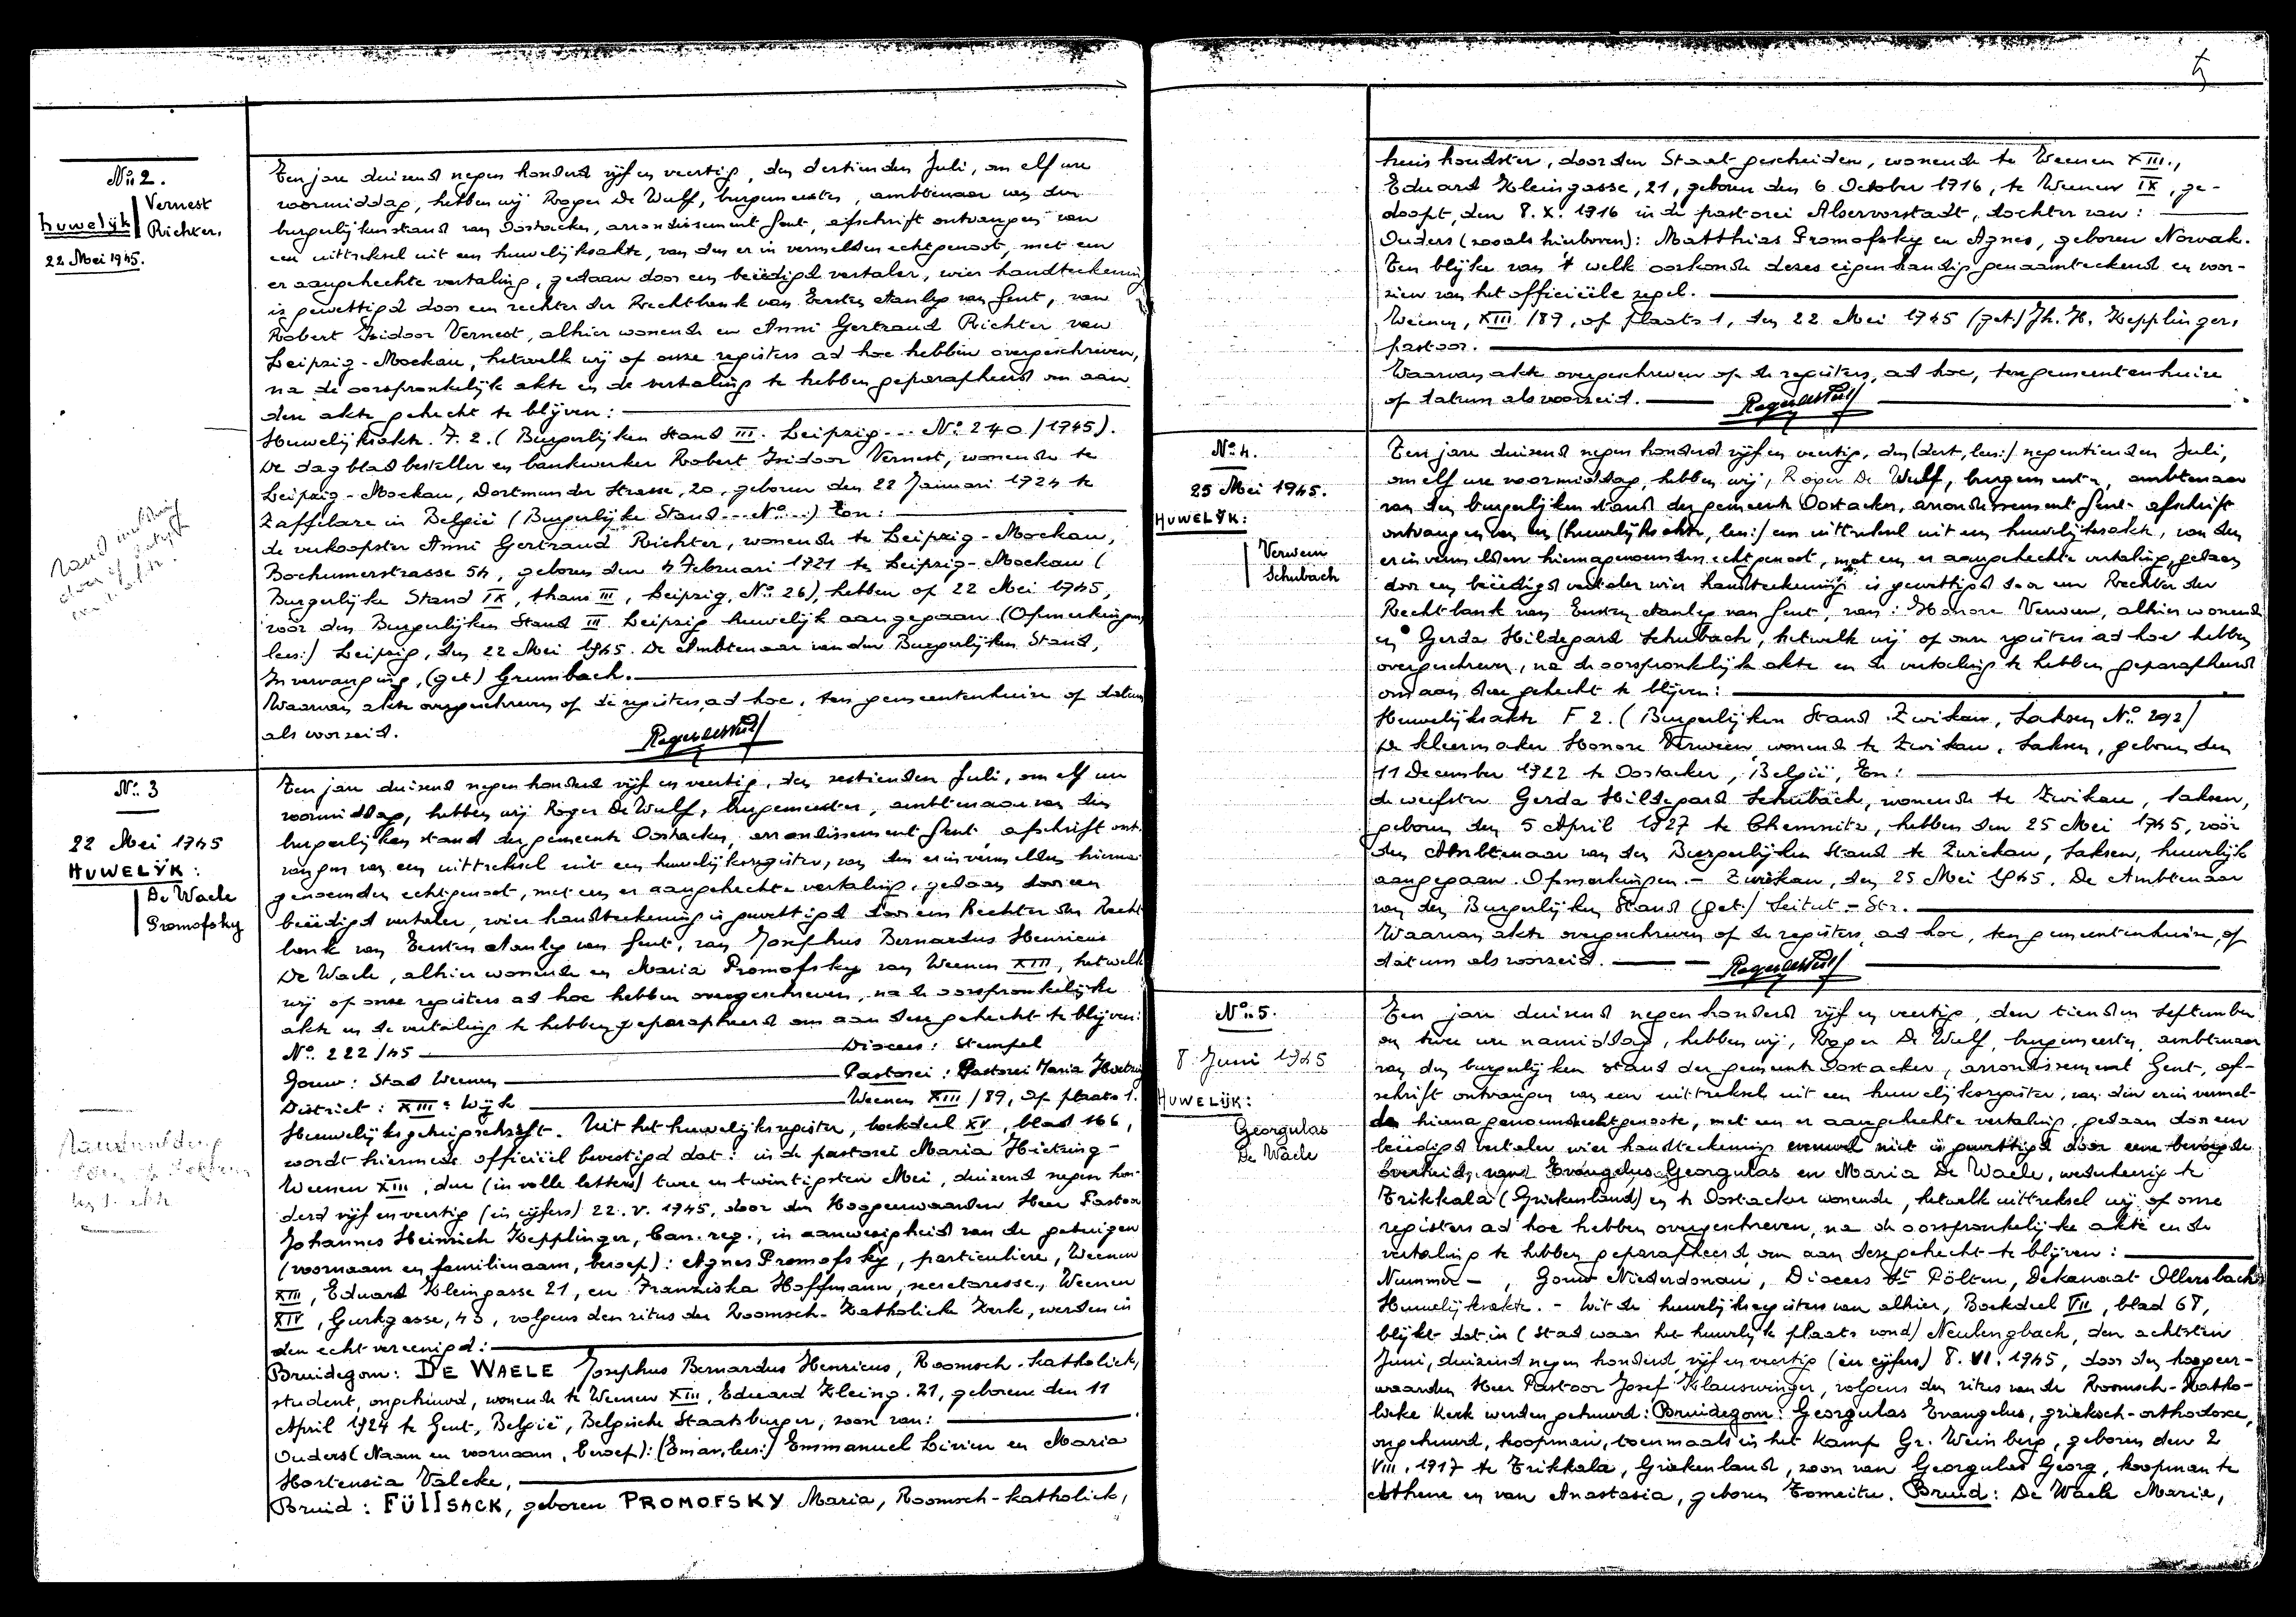 Nº 2.
Huwelijk
Vernest
Richter.
22 Mei 1945.
Ten jare duizend negen honderd vijf en veertig, den dertienden Juli, om elf ure
voormiddag, hebben wij Roger De Wulf, burgemeester, ambtenaar van den
burgerlijken stand van Oostacker, arrondissement Gent, afschrift ontvangen van
een uittreksel uit een huwelijksakte, van den er in vermelden echtgenoot, met een
er aangehechte vertaling, gedaan door een beëedigd vertaler, wier handteekening
is gewettigd door een rechter der Rechtbank van Eersten Aanleg van Gent, van
Robert Isidoor Vernest, alhier wonende en Anni Gertraud Richter van
Leipzig-Mockau, hetwelk wij op onze registers ad hoc hebben overgeschreven,
na de oorspronkelijk akte en de vertaling te hebben geparapheerd om aan
deze akte gehecht te blijven:
Huwelijksakte F. 2. (Burgerlijken Stand III. Leipzig... Nº 240/1945).
De dagbladbesteller en bankwerker Robert Isidoor Vernest, wonende te
Leipzig-Mockau, Dortmunder Strasse, 20, geboren den 22 Januari 1924 te
Zaffelare in België (Burgerlijke Stand... Nº...) En:
de verkoopster Anni Gertraud Richter, wonende te Leipzig-Mockau,
Bochumerstrasse 54, geboren den 4 Februari 1921 te Leipzig-Mockau (
Burgerlijke Stand IX, thans III, Leipzig, Nº 26), hebben op 22 Mei 1945,
vóór den Burgerlijken Stand III Leipzig huwelijk aangegaan (Opmerkingen,
lees:) Leipzig, den 22 Mei 1945. De Ambtenaar van den Burgerlijken Stand,
In vervanging, (get) Grumbach.
Waarvan akte overgeschreven op de registers, ad hoc, ten gemeentenhuize op datum
als voorzeid.
Roger De Wulf
Nº 3
22 Mei 1945
HUWELIJK:
De Waele
Promofsky
Ten jare duizend negen honderd vijf en veertig, den zestienden Juli, om elf ure
voormiddag, hebben wij Roger De Wulf, burgemeester, ambtenaar van den
burgerlijken stand der gemeente Oostacker, arrondissement Gent, afschrift ont-
vangen van een uittreksel uit een huwelijksregister, van den er in vermelden hierna
genoemden echtgenoot, met een er aangehechte vertaling, gedaan door een
beëedigd vertaler, wier handteekening is gewettigd door een Rechter der Recht
bank van Eersten Aanleg van Gent, van Josephus Bernardus Henricus
De Waele, alhier wonende en Maria Promofsky van Weenen XIII, hetwelk
wij op onze registers ad hoc hebben overgeschreven, na de oorspronkelijke
akte en de vertaling te hebben geparapheerd om aan deze gehecht te blijven:
Nº 222/45 Diocees: Stempel
Gouw: Stad Weenen Pastorei: Pastorei Maria Hietzing
District: XIIIe Wijk Weenen XIII/89, Op plaats 1.
Huwelijksgetuigschrift. Uit het huwelijksregister, boekdeel XV, blad 166,
wordt hiermede officiëel bevestigd dat: in de pastorei Maria Hietzing-
Weenen XIII, den (in volle letters) twee en twintigsten Mei, duizend negen hon-
derd vijf en veertig (in cijfers) 22. V. 1945, door den Hoogeerwaarden Heer Pastoor
Johannes Heinrich Kepplinger, Can. reg., in aanwezigheid van de getuigen
(voornaam en familienaam, beroep): Agnes Promofsky, particuliere, Weenen
XIII, Eduard Kleingasse 21, en Franziska Hoffmann, secretaresse, Weenen
XIV, Gurkgasse, 43, volgens den ritus der Roomsch-Katholieke Kerk, werden in
den echt vereenigd:
Bruidegom: DE WAELE Josephus Bernardus Henricus, Roomsch-katholiek,
student, ongehuwd, wonende te Weenen XIII, Eduard Kleing. 21, geboren den 11
April 1924 te Gent, België, Belgische Staatsburger, zoon van:
Ouders (Naam en voornaam, beroep): (Eman, lees:) Emmanuel Livien en Maria
Hortensia Valcke,
Bruid: FÜllSACK, geboren PROMOFSKY Maria, Roomsch-katholiek,
huishoudster, door den Staat gescheiden, wonende te Weenen XIII.,
Eduard Kleingasse, 21, geboren den 6 October 1916, te Weenen IX, ge-
doopt, den 8. X. 1916 in de pastorei Alservorstadt, dochter van:
Ouders (zooals hierboven): Matthias Promofsky en Agnes, geboren Nowak.
Ten blijke van 't welk oorkonde dezes eigenhandig genaamteekend en voor-
zien van het officiëele zegel.
Weenen, XIII/89, op plaats 1, den 22 Mei 1945 (get.) Jh. H. Kepplinger,
pastoor.
Waarvan akte overgeschreven op de registers, ad hoc, ten gemeentenhuize
op datum als voorzeid.
Roger De Wulf
Nº 4.
25 Mei 1945.
HUWELIJK:
Verween
Schubach
Ten jare duizend negen honderd vijf en veertig, den (dert, lees:) negentienden Juli,
om elf ure voormiddag, hebben wij, Roger De Wulf, burgemeester, ambtenaar
van den burgerlijken stand der gemeente Oostacker, arrondissement Gent afschrift
ontvangen van een (huwelijksakte, lees:) een uittreksel uit een huwelijksakte, van den
er in vermelden hiernagenoemden echtgenoot, met een er aangehechte vertaling, gedaan
door een beëedigd vertaler wier handteekening is gewettigd door een Rechter der
Rechtbank van Eersten Aanleg van Gent, van: Honoré Verween, alhier wonende
en Gerda Hildegard Schubach, hetwelk wij op onze registers ad hoc hebben
overgeschreven, na de oorspronkelijke akte en de vertaling te hebben geparapheerd
om aan deze gehecht te blijven:
Huwelijksakte F 2. (Burgerlijken Stand Zwikau, Saksen Nº 292)
De kleermaker Honoré Verween wonende te Zwikau, Saksen, geboren den
11 December 1922 te Oostacker, België, En:
de weefster Gerda Hildegard Schubach, wonende te Zwikau, Saksen,
geboren den 5 April 1927 te Chemnitz, hebben den 25 Mei 1945, vóór
den Ambtenaar van den Burgerlijken Stand te Zwickau, Saksen, huwelijk
aangegaan. Opmerkingen.- Zwickau, den 25 Mei 1945. De Ambtenaar
van den Burgerlijken Stand (get.) - Str.
Waarvan akte overgeschreven op de registers, ad hoc, ten gemeentenhuize, op
datum als voorzeid.
Roger De Wulf
Nº 5.
8 Juni 1945
HUWELIJK:
Georgulas
De Waele
Ten jare duizend negen honderd vijf en veertig, den tienden September
om twee ure namiddag, hebben wij, Roger De Wulf, burgemeester, ambtenaar
van den burgerlijken stand der gemeente Oostacker, arrondissement Gent, af-
schrift ontvangen van een uittreksel uit een huwelijksregister, van den er in vermel-
de hiernagenoemde echtgenoote, met een er aangehechte vertaling, gedaan door een
beëedigd vertaler wier handteekening evenwel niet is gewettigd door eene bevoegde
overheid, van Evangelus Georgulas en Maria De Waele, wederkeerig te
Trikkala (Griekenland) en te Oostacker wonende, hetwelk uittreksel wij op onze
registers ad hoc hebben overgeschreven, na de oorspronkelijke akte en de
vertaling te hebben geparapheerd, om aan deze gehecht te blijven:
Nummer - , Gouw Niederdonau, Diocees St Pölten, Dekanaat Ollersbach
Huwelijksakte. - Uit de huwelijksregisters van alhier, Boekdeel VII, blad 68,
blijkt dat in (stad waar het huwelijk plaats vond) Neulengbach, den achtsten
Juni, duizend negen honderd vijf en veertig (in cijfers) 8. VI. 1945, door den hoogeer-
waarden Heer Pastoor Josef Klauswinger, volgens den ritus van de Roomsch-Katho-
lieke Kerk werden gehuwd: Bruidegom: Georgulas Evangelus, grieksch-orthodoxe,
ongehuwd, koopman, toenmaals in het Kamp Gr. Weinberg, geboren den 2
VIII. 1917 te Trikkala, Griekenland, zoon van Georgulas Georg, koopman te
Athene en van Anastasia, geboren Tomeitu. Bruid: De Waele Maria,